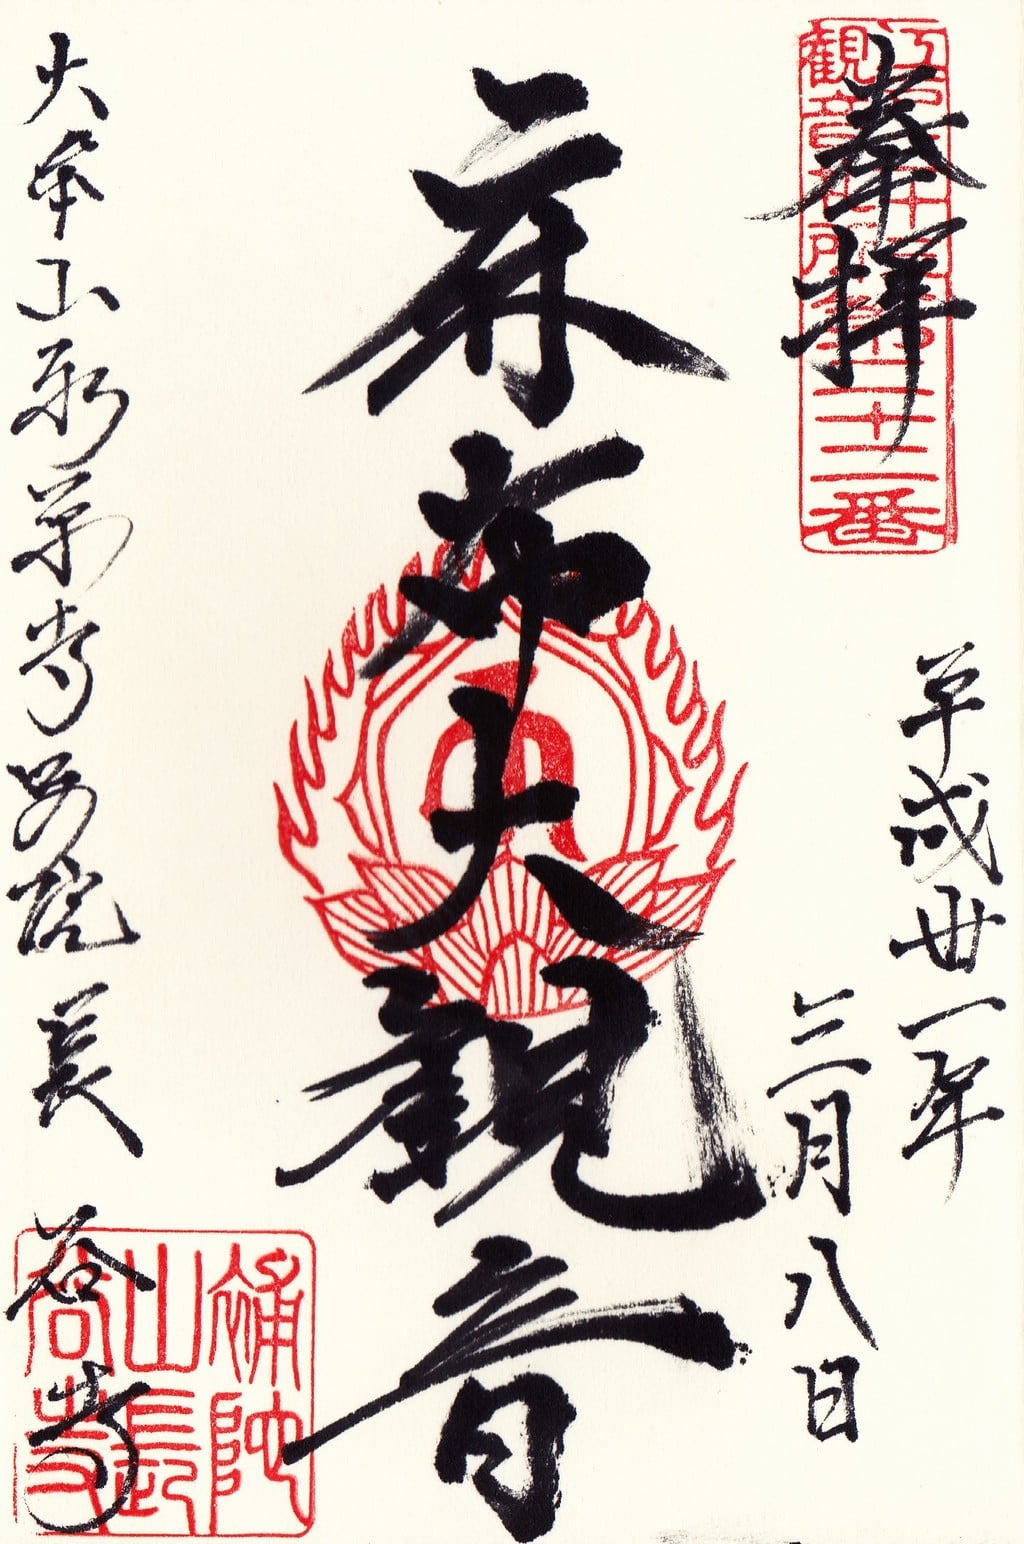 奉拝
江戸三十三箇所
観音札所第二十二番
平成卅一年
三月八日
麻布大観音
大本山永平寺別院長
谷寺
補陀
山長
谷寺